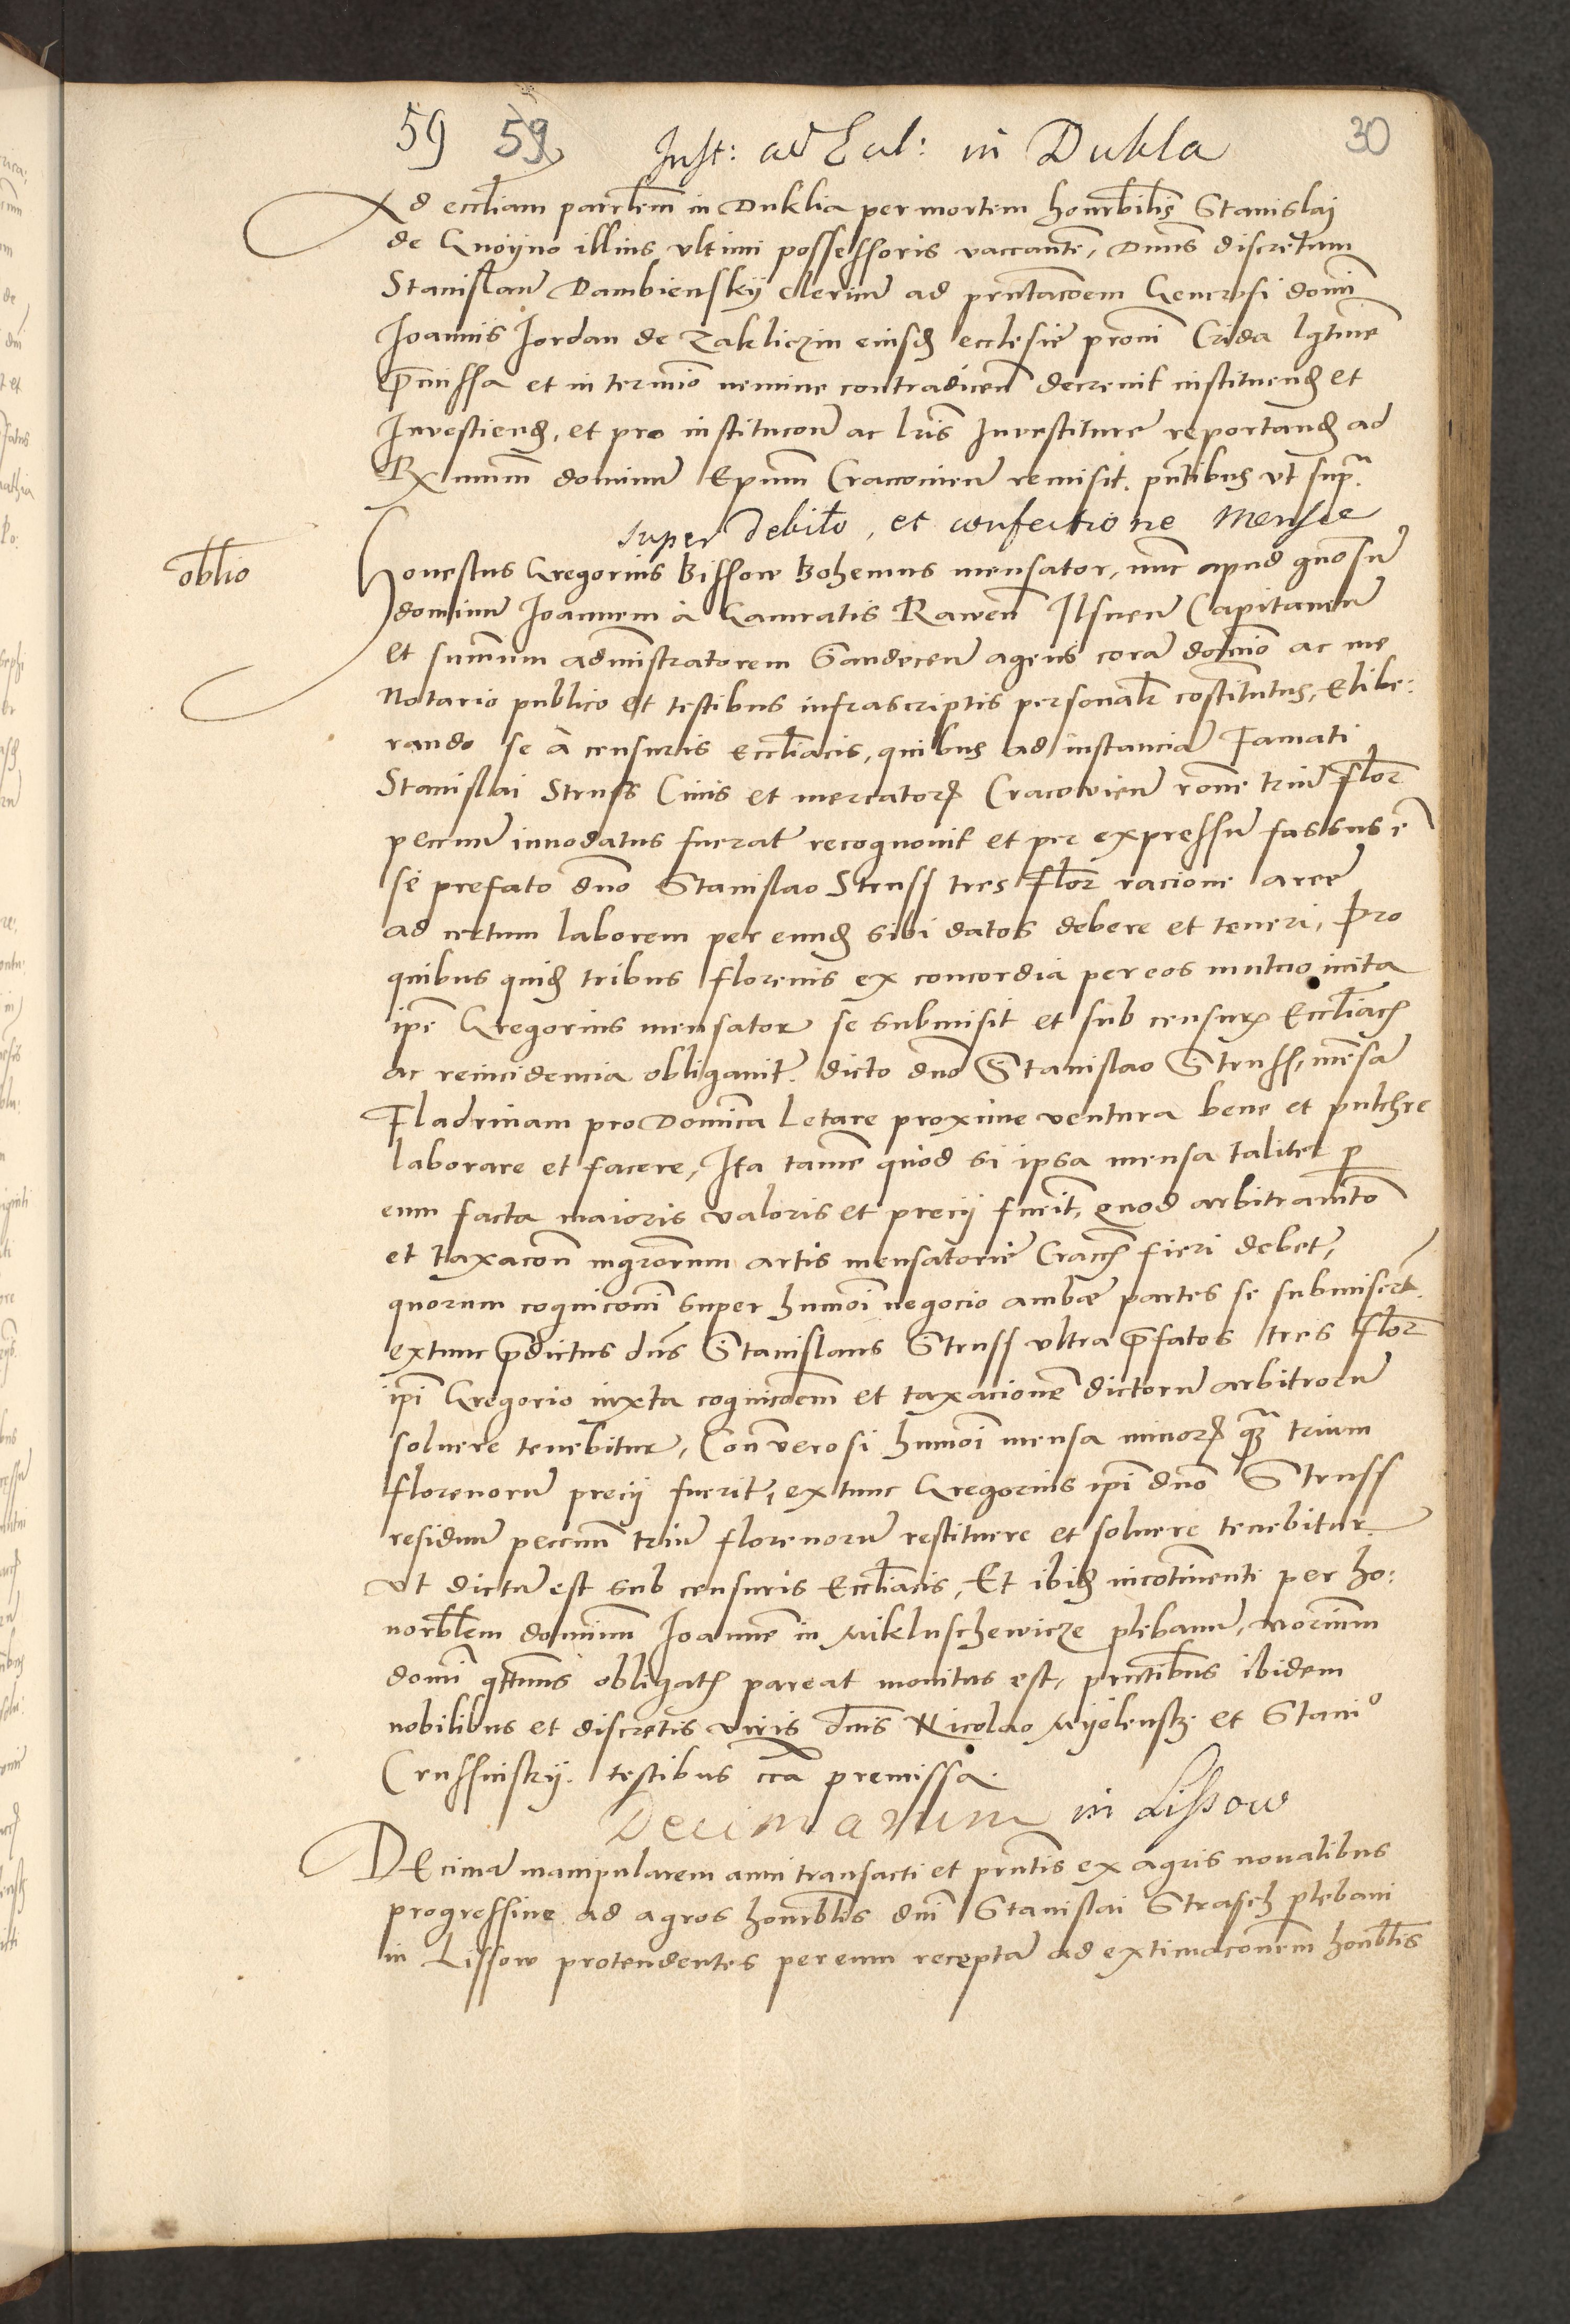 59 59 Inst: ad Eccl: in Dukla 30
Ad eccliam parrlem in Duklia per mortem honorbilis Stanislaj
de Gnoyno illius ultimi possessoris vaccanten, Dnus discretum
Stanislaum Dambiensky clericum ad prntacoem Generosi domi
Joannis Jordan de Zakliczin eiusd ecclesie proni Crida lgtime
pmissa et in termio nemine contradicen decrevit instituend et
Investiend, et pro institucone ac lris Investiture reportand ad
Rxmum dominum Epum Cracovien remisit. pntibus ut supra
super debito, et confectione Mensae
oblio
Honestus Gregorius Bissow Bohemus mensator, nunc apud gnosum
dominum Joannem a Gamratis Rawen Ilsnen Capitaneum
et summum administratorem Sandecen agens coram domio ac me
Notario publico et testibus infrascriptis personalr costitutus, Elibe:
rando se a censuris eccliacis, quibus ad instanciam Famati
Stanislai Struss Civis et mercatoris Cracovien rone trium flor
peccun innodatus fuerat recognovit et per expressum fassus e
se prefato dno Stanislao Struss tres flor racione aree
ad certum laborem per eund sibi datos debere et teneri, Pro
quibus quid tribus florenis ex concordia per eos mutuo inita
ipe Gregorius mensator se submisit et sub censuris Eccliacis
ac reincidencia obligavit. dicto dno Stanislao Struss, mensam
Fladrinam pro Domica Letare proxime ventura bene et pulchre
laborare et facere, Ita tame quod si ipsa mensa taliter p
eum facta maioris valoris et precij fuerit, quod arbitramto
et taxacon mgrorum artis mensatorie Cracch fieri debet,
quorum cognicioni super humoi negocio ambae partes se submisert.
extunc pdictus dns Stanislaus Struss ultra pfatos tres flor
ipi Gregorio iuxta cognicoem et taxacionem dictorum arbitrorum
soluere tenebitur, Con vero si humoi mensa minoris qua trium
florenorum precij fuerit, extunc Gregorius ipi dno Struss
residuum peccun trium florenorum restituere et soluere tenebitur
ut dictum est sub censuris Eccliacis, Et ibid incotinenti per ho:
norblem dominum Joannem in Mikluschewicze plebanum,
domi qtnus obligatis pareat monitus est, prntibus ibidem
nobilibus et discretis viris dnis Nicolao Myslensky et Stanio
Crussinsky. testibus cca premissa.
Decimarum in Lissow
DEcimam manipularem anni transacti et prntis ex agris novalibus
progressive ad agros honorblis dni Stanislai Strasch plebani
in Lissow protendentes per eum receptam ad extimaconem honblis